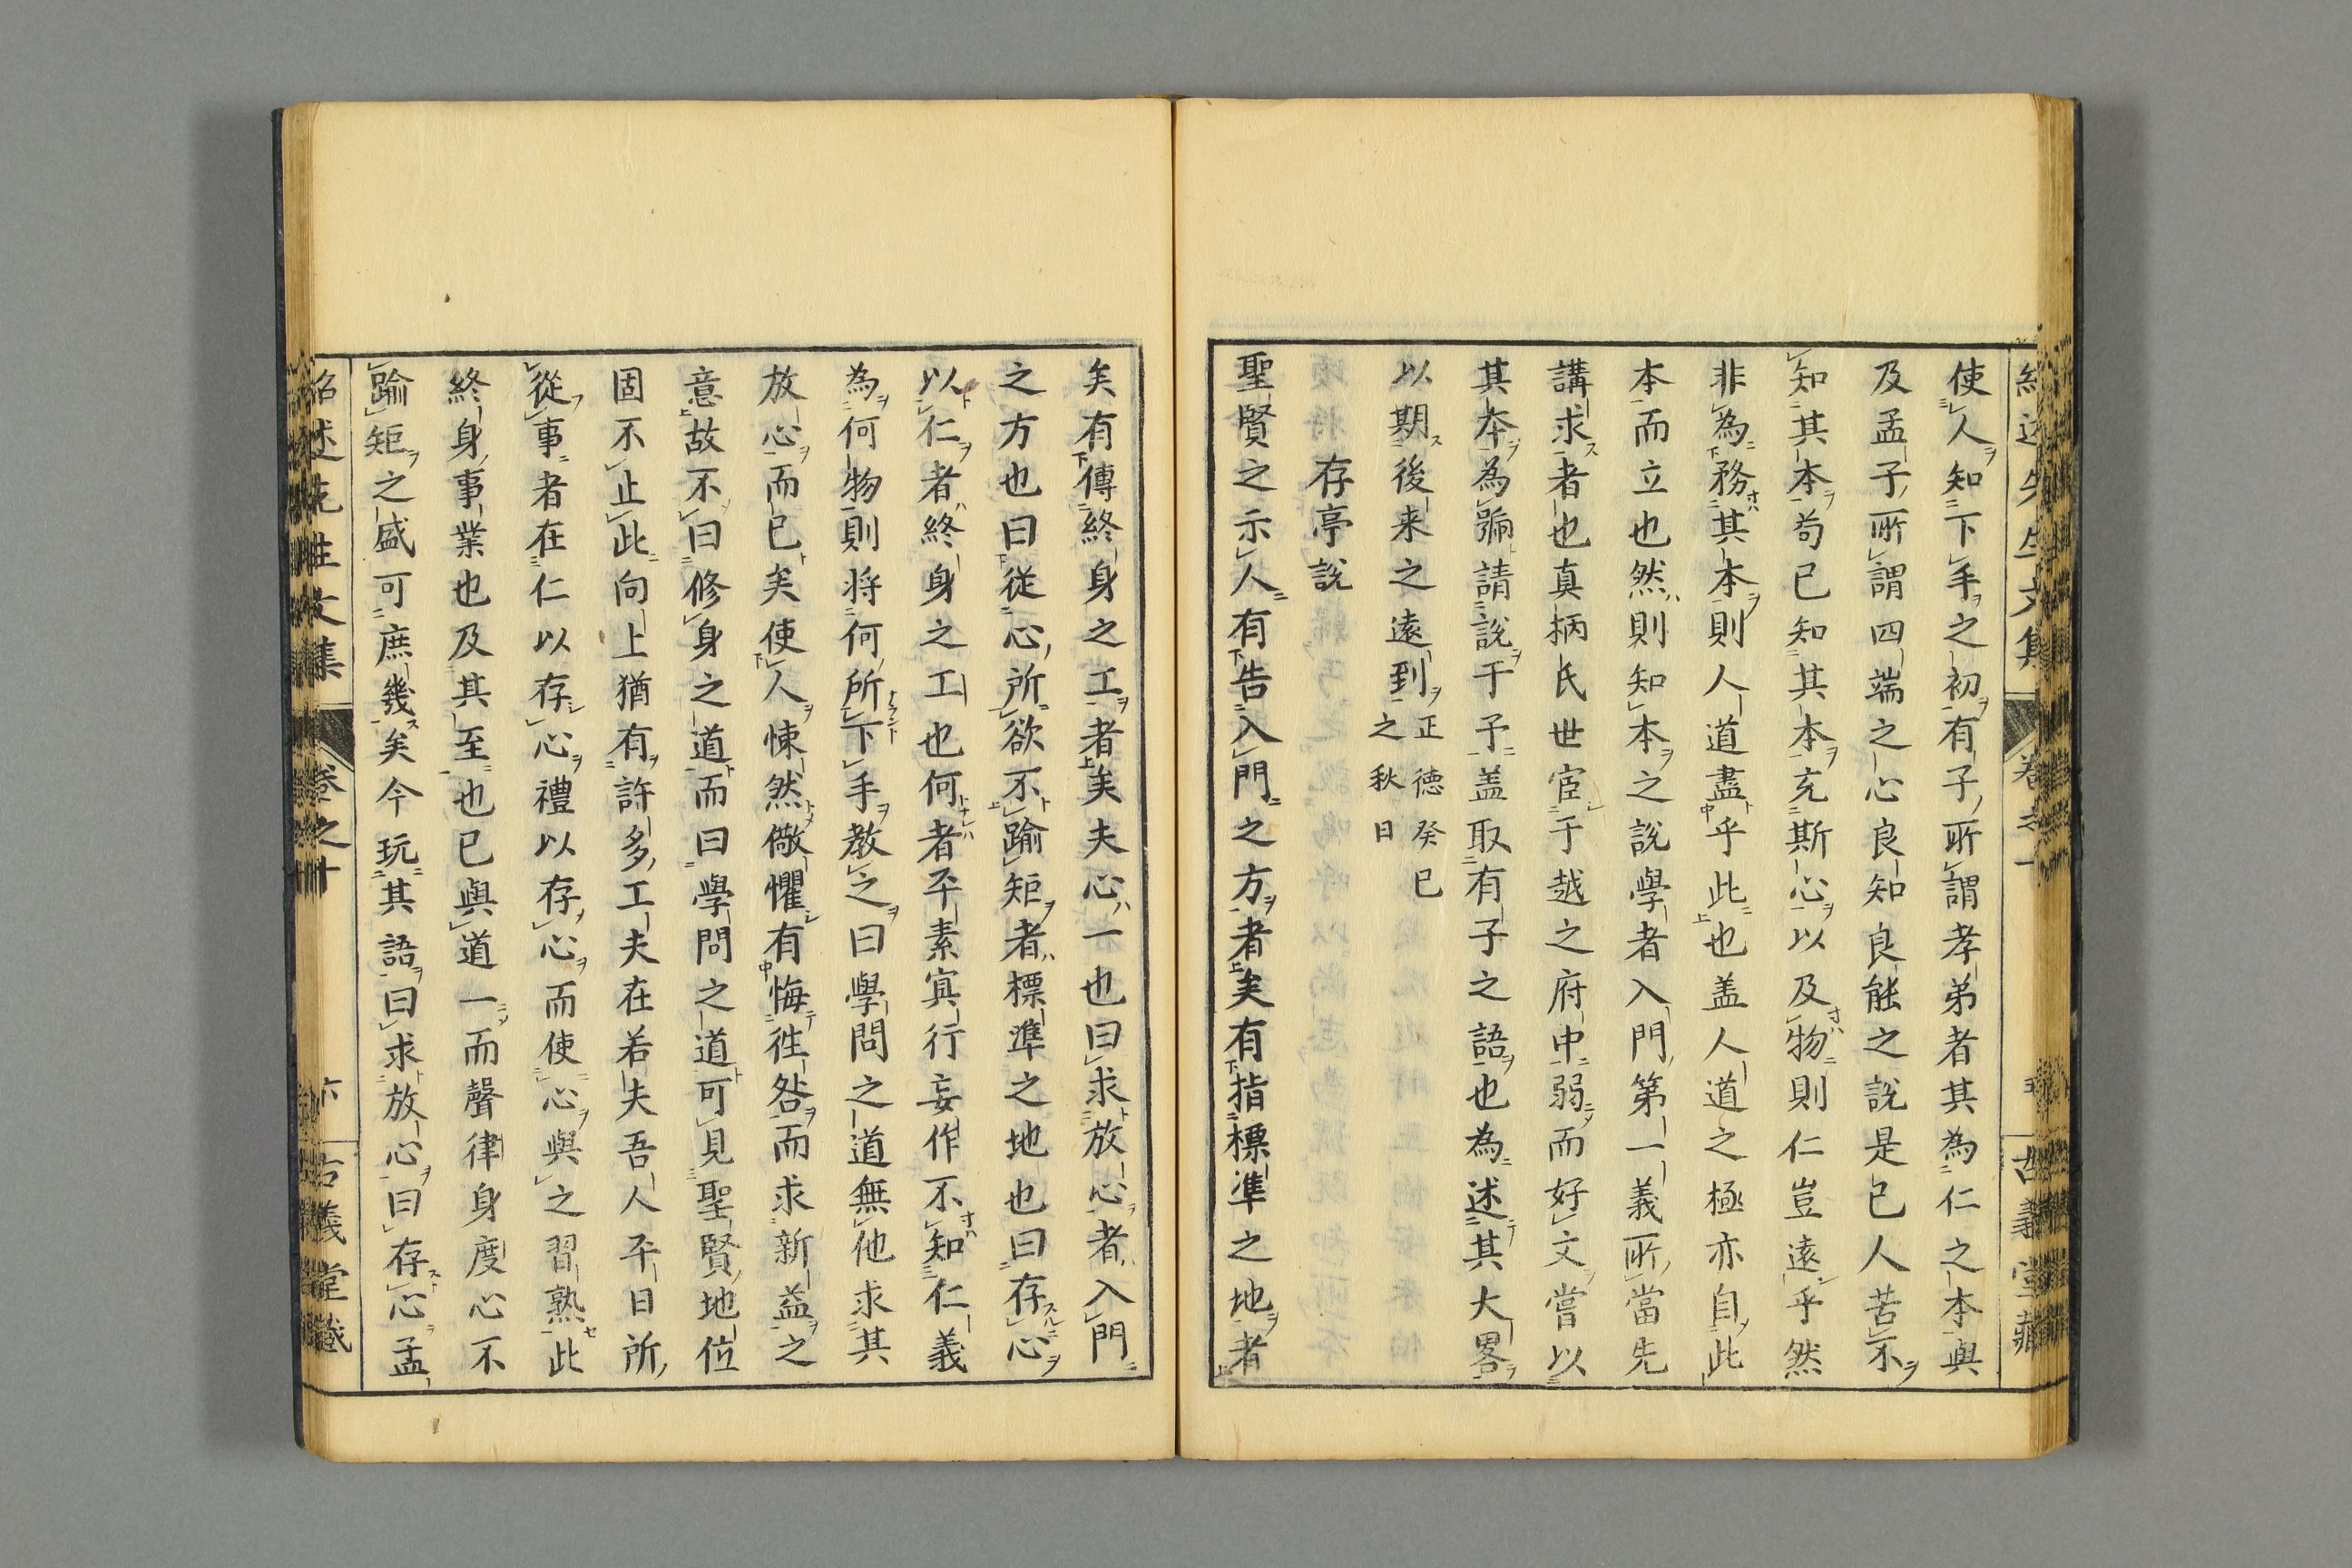 使人知下手之初有子所謂孝弟者其為仁之本與
及孟子所謂四端之心良知良能之說是已人苦不
知其本苟已知其本充斯心以及物則仁豈遠乎然
非為務其本則人道盡乎此也盖人道之極亦自此
本而立也然則知本之說學者入門第一義所當先
講求者也真柄氏世宦于越之府中弱而好文嘗以
其本為號請說于予盖取有子之語也為述其大畧
以期後来之遠到正德癸巳之秋日
存亭說
聖賢之示人有告入門之方者矣有指標準之地者
矣有傳終身之工者矣夫心一也曰求放心者入門
之方也曰從心所欲不踰矩者標準之地也曰存心
以仁者終身之工也何者平素冥行妄作不知仁義
為何物則將何所下手教之曰學問之道無他求其
放心而已矣使人悚然儆懼有悔徃咎而求新益之
意故不曰修身之道而曰學問之道可見聖賢地位
固不止此向上猶有許多工夫在若夫吾人平日所
從事者在仁以存心禮以存心而使心與之習熟此
終身事業也及其至也已與道一而聲律身度心不
踰矩之盛可庶幾矣今玩其語曰求放心曰存心孟
紹述先生文集
卷之十
六
古義堂藏